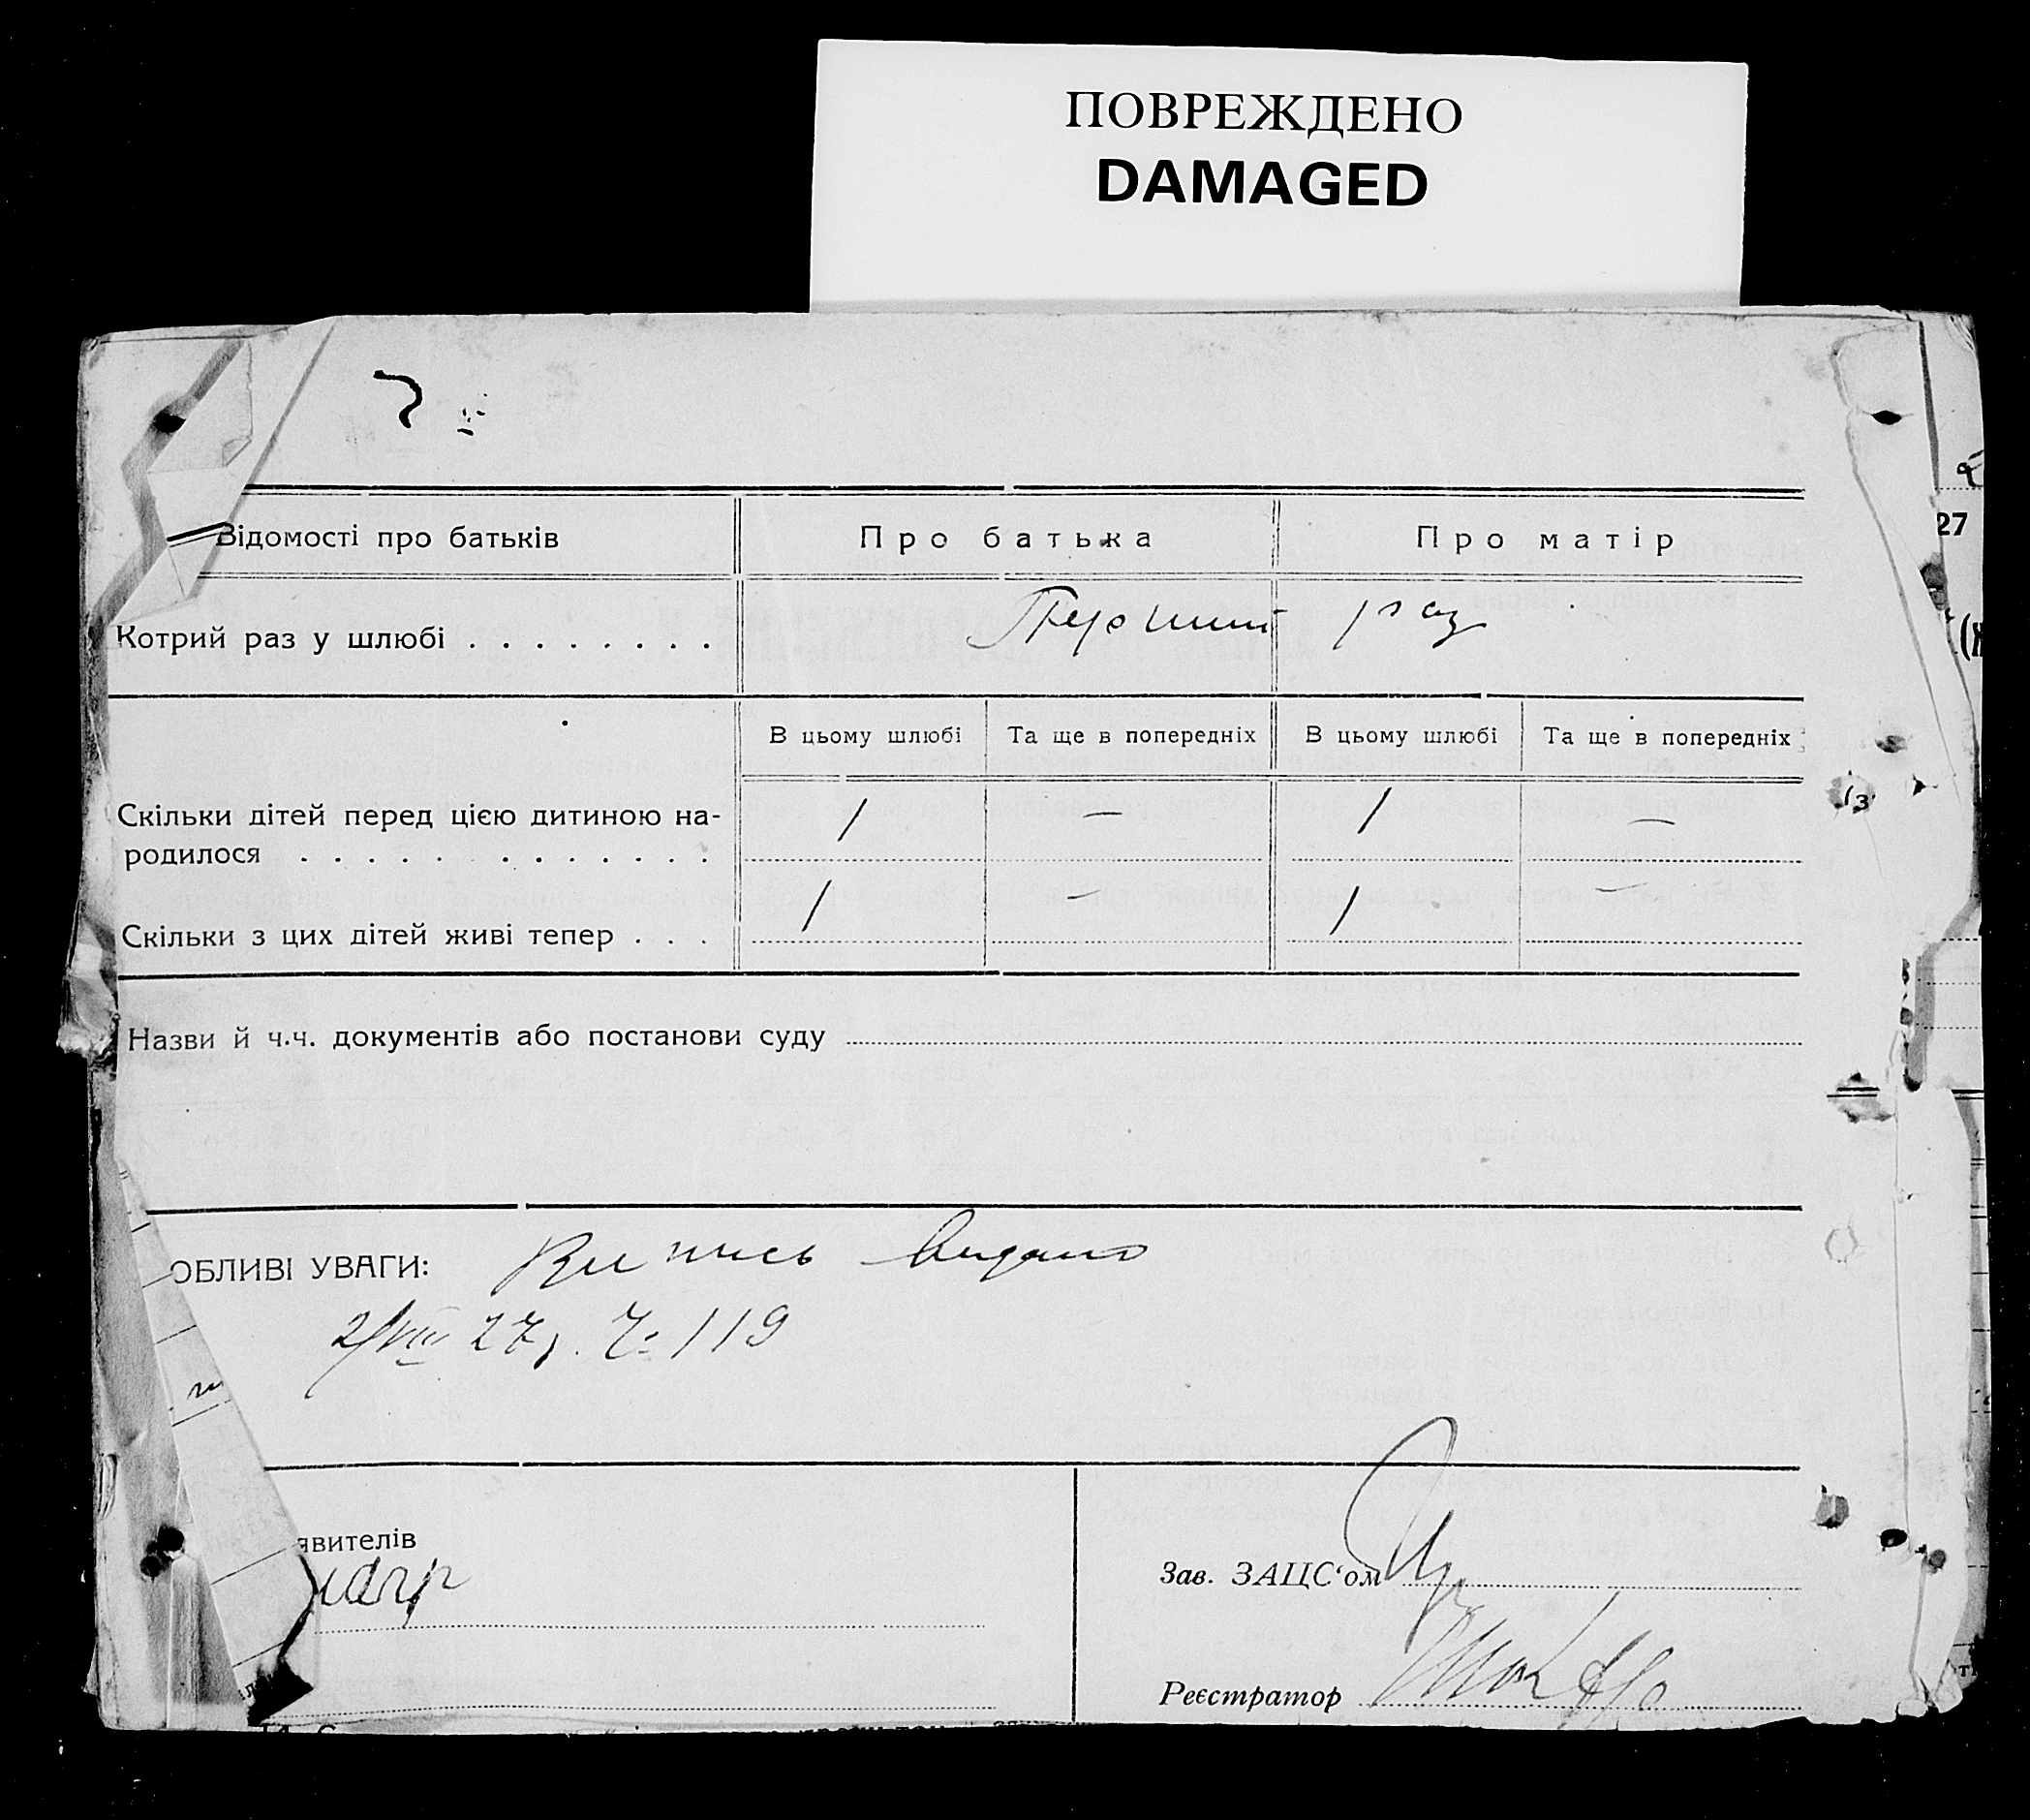 ПОВРЕЖДЕНО
DAMAGED
Відомості про батьків
Про батька
Про матір
27
Котрий раз у шлюбі . . . . . . . .
Перший раз
В цьому шлюбі
Та ще в попередніх
В цьому шлюбі
Та ще в попередніх
Скільки дітей перед цією дитиною на-
родилося . . . . . . . . . . . . .
1 — 1 —
Скільки з цих дітей живі тепер . . .
1 — 1 —
Назви й ч.ч. документів або постанови суду
ОБЛИВІ УВАГИ: Випись видано
2/VIII 27р. Ч: 119
явителів
Зав. ЗАЦС‘ом
Реєстратор